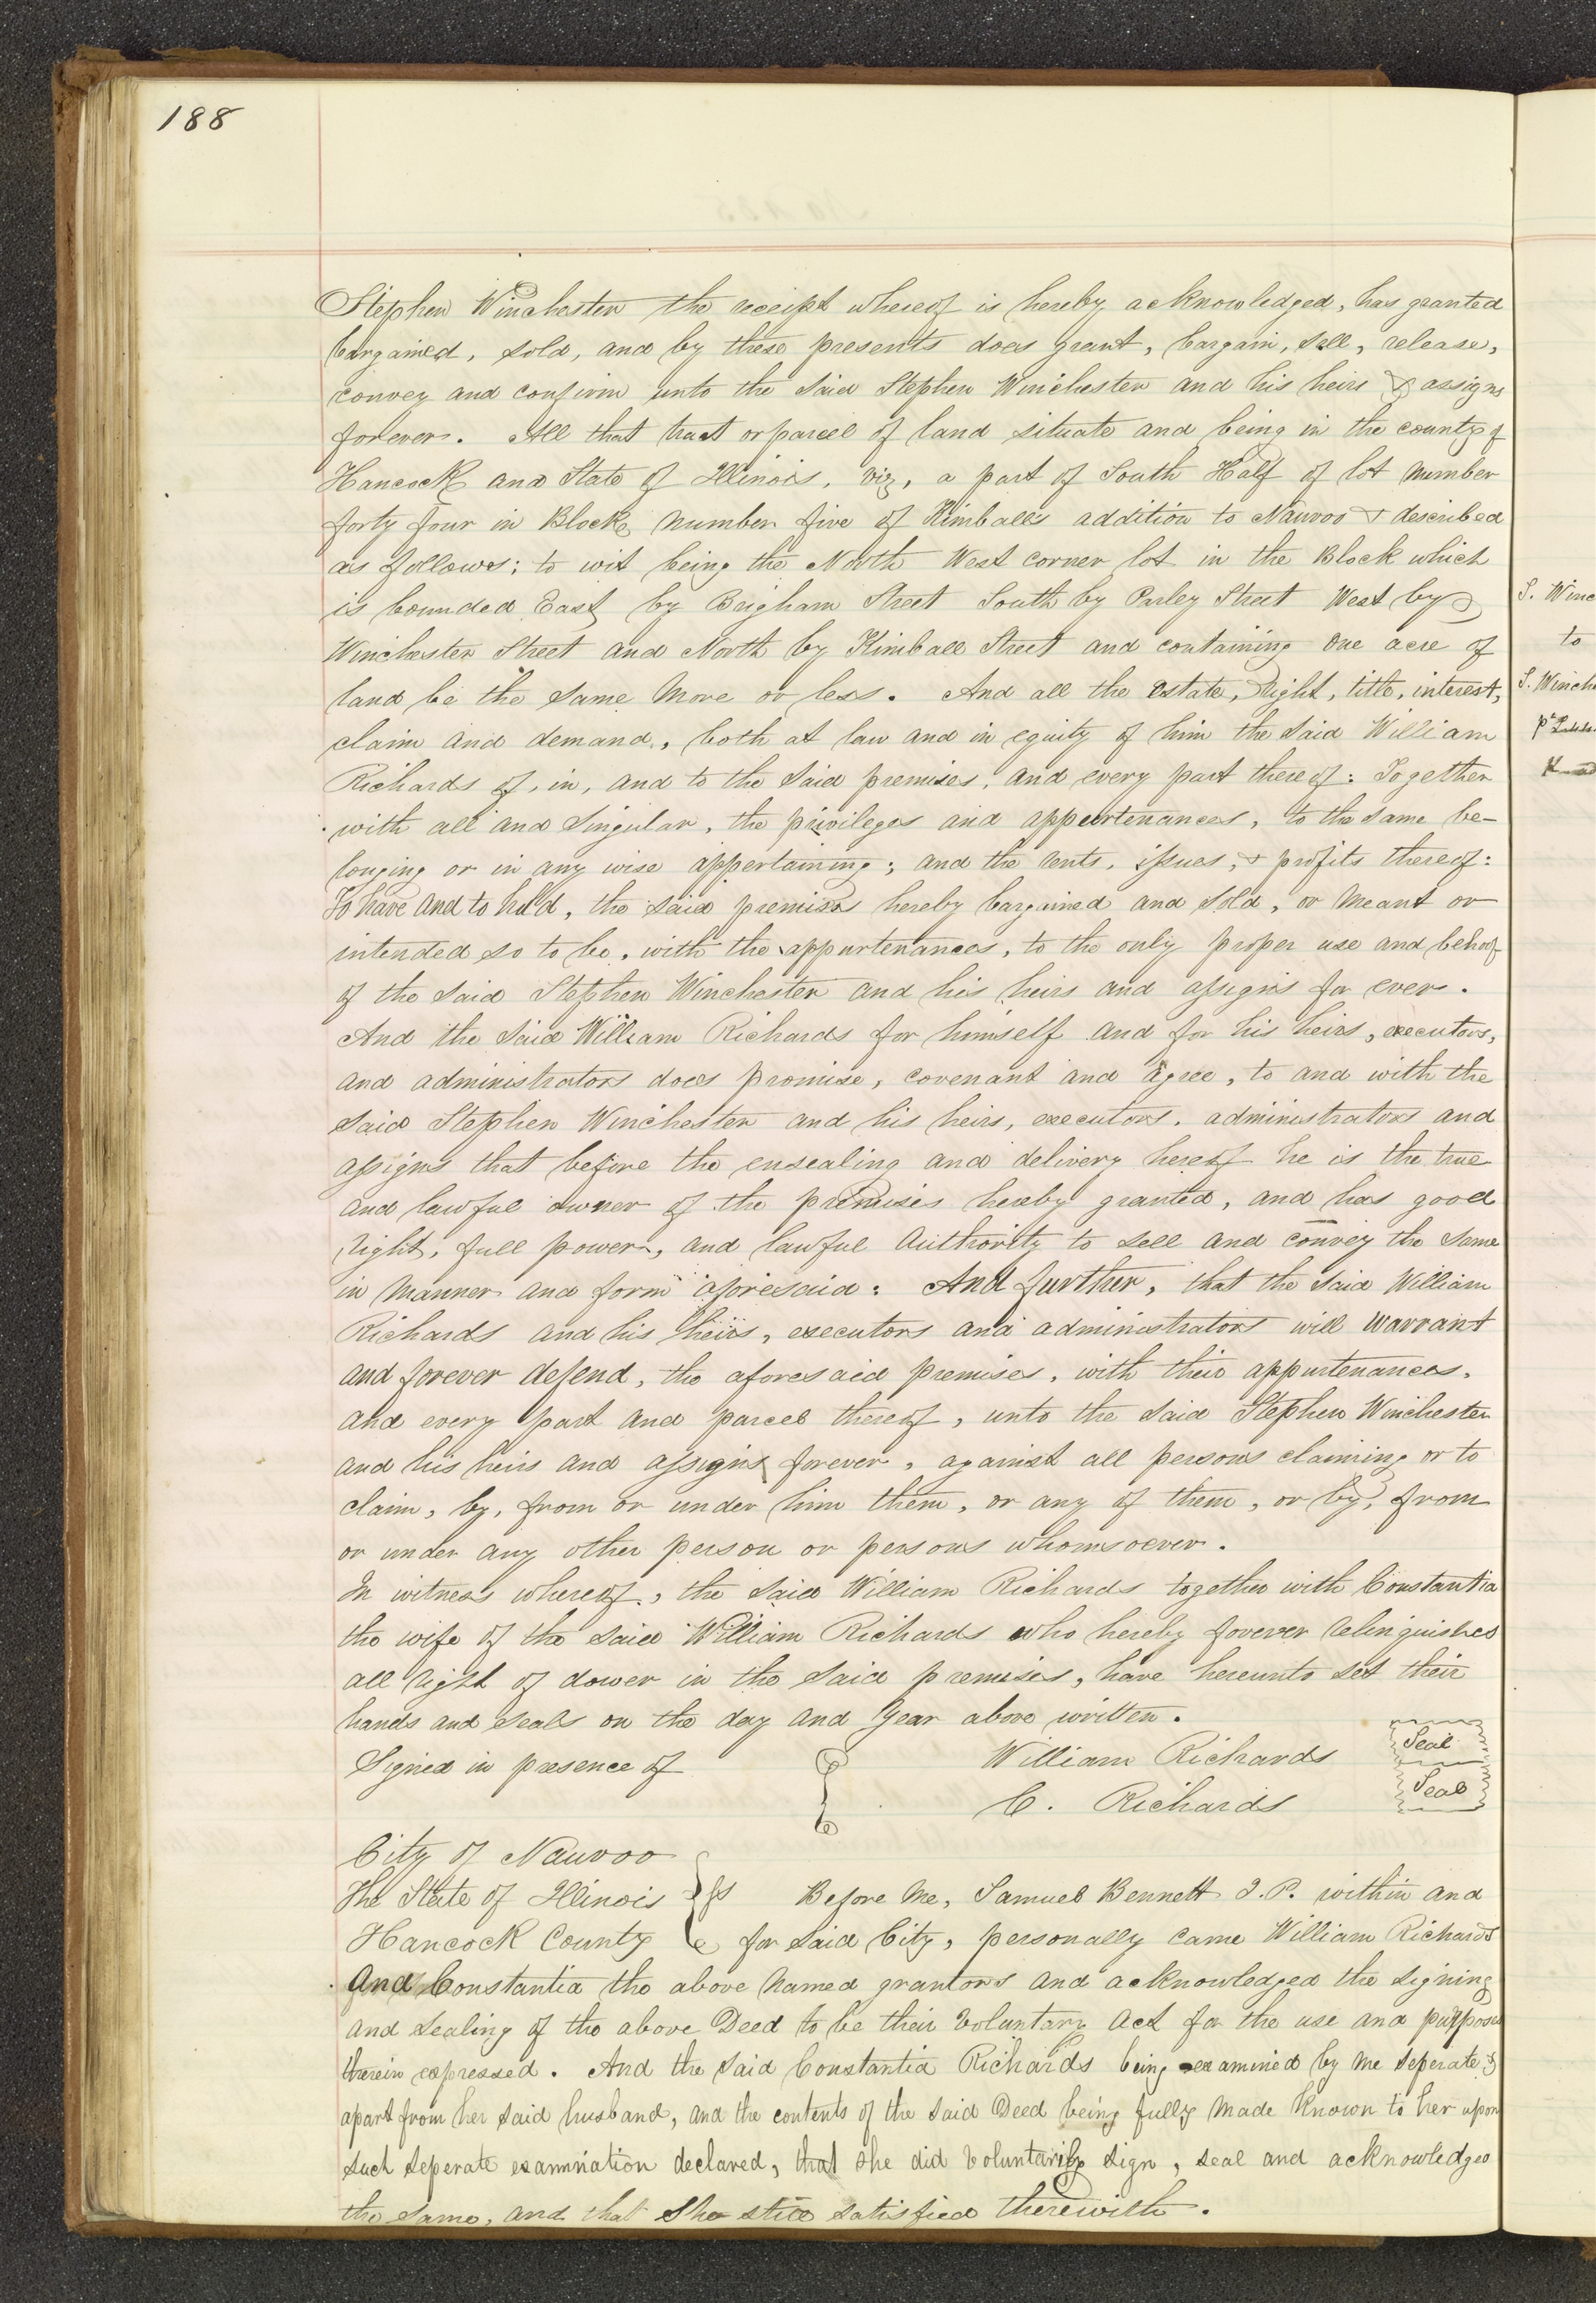 188
Stephen Winchester the receipt whereof is hereby acknowledged, has granted
bargained, sold, and by these presents does grant, bargain, sell, release,
convey and confirm unto the said Stephen Winchester and his heirs & assigns
forever. All that tract or parcel of land situate and being in the county of
Hancock and State of Illinois, viz, a part of South Half of lot number
forty four in Block number five of Kimballs addition to Nauvoo & described
as follows; to wit being the North West corner lot in the Block which
is bounded East by Brigham Street South by Parley Street West by
Winchester Street and North by Kimball Street and containing one acre of
land be the same more or less. And all the estate, Right, title, interest,
claim and demand, both at law and in equity of him the said William
Richards of, in, and to the said premises, and every part thereof: Together
with all and singular, the privileges and appurtenances, to the same be-
longing or in any wise appertaining; and the rents, issues, & profits thereof:
To have and to hold, the said premises hereby bargained and sold, or meant or
intended so to be, with the appurtenances, to the only proper use and behoof
of the said Stephen Winchester and his heirs and assigns for ever.
And the said William Richards for himself and for his heirs, executors,
and administrators does promise, covenant and agree, to and with the
said Stephen Winchester and his heirs, executors, administrators and
assigns that before the ensealing and delivery hereof he is the true
and lawful owner of the premises hereby granted, and has good
right, full power, and lawful authority to sell and convey the same
in manner and form aforesaid: And further, that the said William
Richards and his heirs, executors and administrators will warrant
and forever defend, the aforesaid premises, with their appurtenances,
and every part and parcel thereof, unto the said Stephen Winchester
and his heirs and assigns forever, against all persons claiming or to
claim, by, from or under him them, or any of them, or by, from
or under any other person or persons whomsoever.
In witness whereof, the said William Richards together with Constantia
the wife of the said William Richards who hereby forever relinquishes
all right of dower in the said premises, have hereunto set their
hands and seals on the day and year above written.
Signed in presence of William Richards Seal
C. Richards Seal
City of Nauvoo
The State of Illinois ss Before me, Samuel Bennett J.P. within and
Hancock County for said City, personally came William Richards
and Constantia the above named grantors and acknowledged the signing
and sealing of the above Deed to be their voluntary act for the use and purposes
therein expressed. And the said Constantia Richards being examined by me seperate &
apart from her said husband, and the contents of the said Deed being fully made known to her upon
such seperate examination declared, that she did voluntarily sign, seal and acknowledge
the same, and that she still satisfied therewith.
S. Winc
to
S. Winche